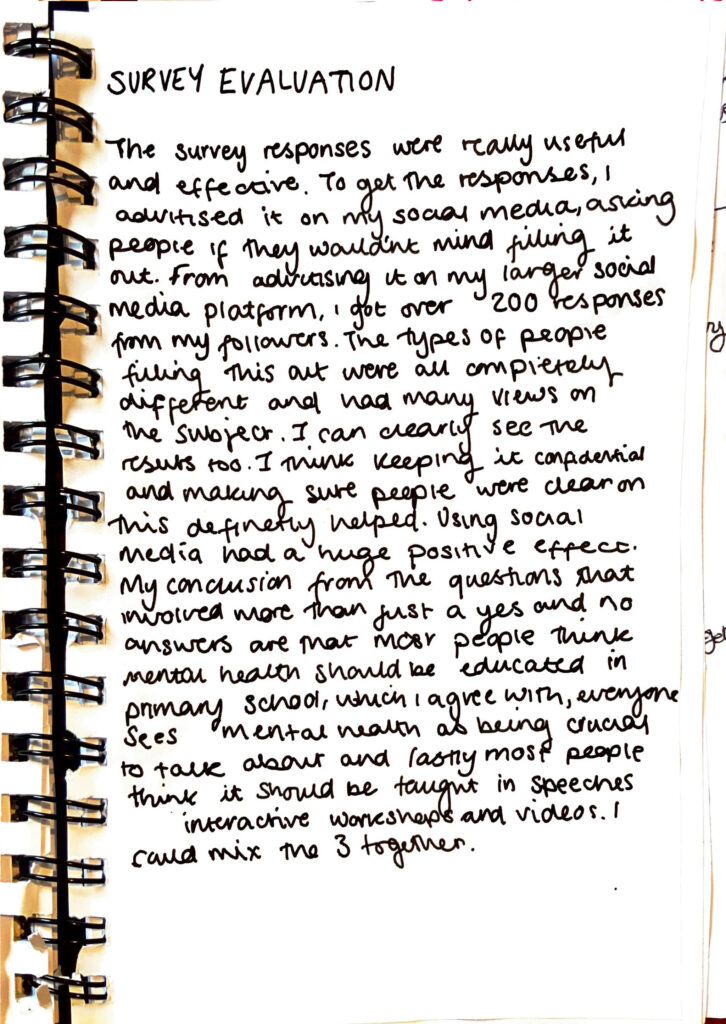 SURVEY EVALUATION
The survey responses were really useful
and effective. To get the responses, I
advitised it on my social media, asking
people if they wouldn't mind filling it
out. From advitising it on my larger social
media platform, I got over 200 responses
from my followers. The types of people
filling this out were all completely
different and had many views on
the subject. I can clearly see the
results too. I think keeping it confidential
and making sure people were clear on
this definetly helped. Using social
media had a huge positive effect.
My conclusion from the questions that
involved more than just a yes and no
answers are that most people think
mental health should be educated in
primary school, which I agree with, everyone
sees mental health as being crucial
to talk about and lastly most people
think it should be taught in speeches
interactive workshops and videos. I
could mix the 3 together.